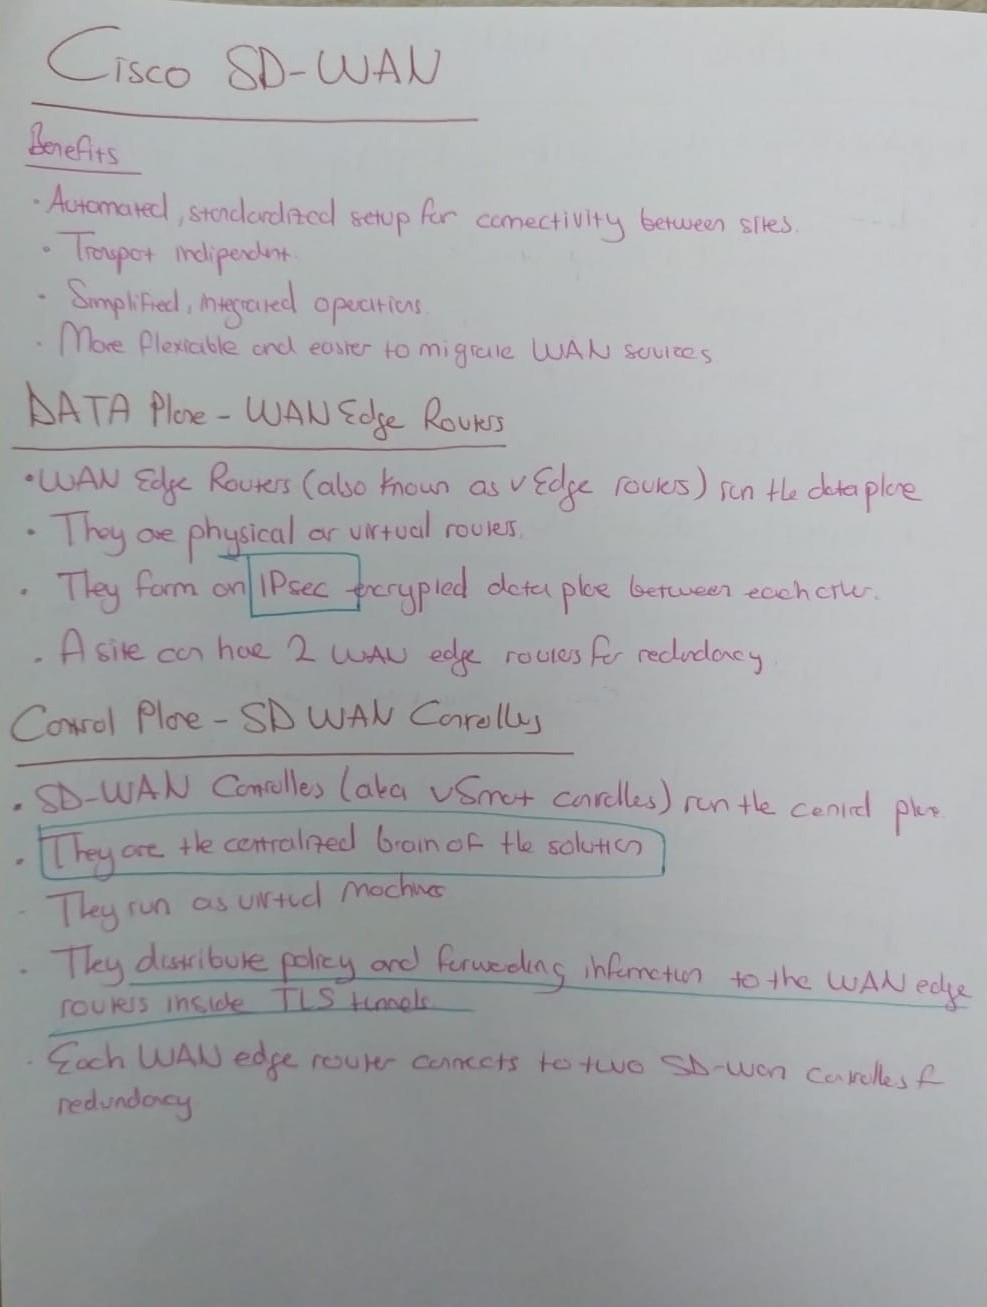 Cisco SD-WAN
Benefits
· Automated, standardized setup for connectivity between sites.
· Transport indipendent.
· Simplified, integrated operations.
· More flexiable and easier to migrate WAN services
DATA Plane - WAN Edge Routers
· WAN Edge Routers (also known as vEdge routers) run the data plane
· They are physical or virtual routers.
· They form an IPsec encrypted data plane between each other.
· A site can have 2 WAN edge routers for redundancy.
Control Plane - SD WAN Controllers
· SD-WAN Controllers (aka vSmart controllers) run the control plane.
· They are the centralized brain of the solution
· They run as virtual machines
· They distribute policy and forwarding information to the WAN edge
routers inside TLS tunnels.
· Each WAN edge router connects to two SD-Wan controllers f
redundancy